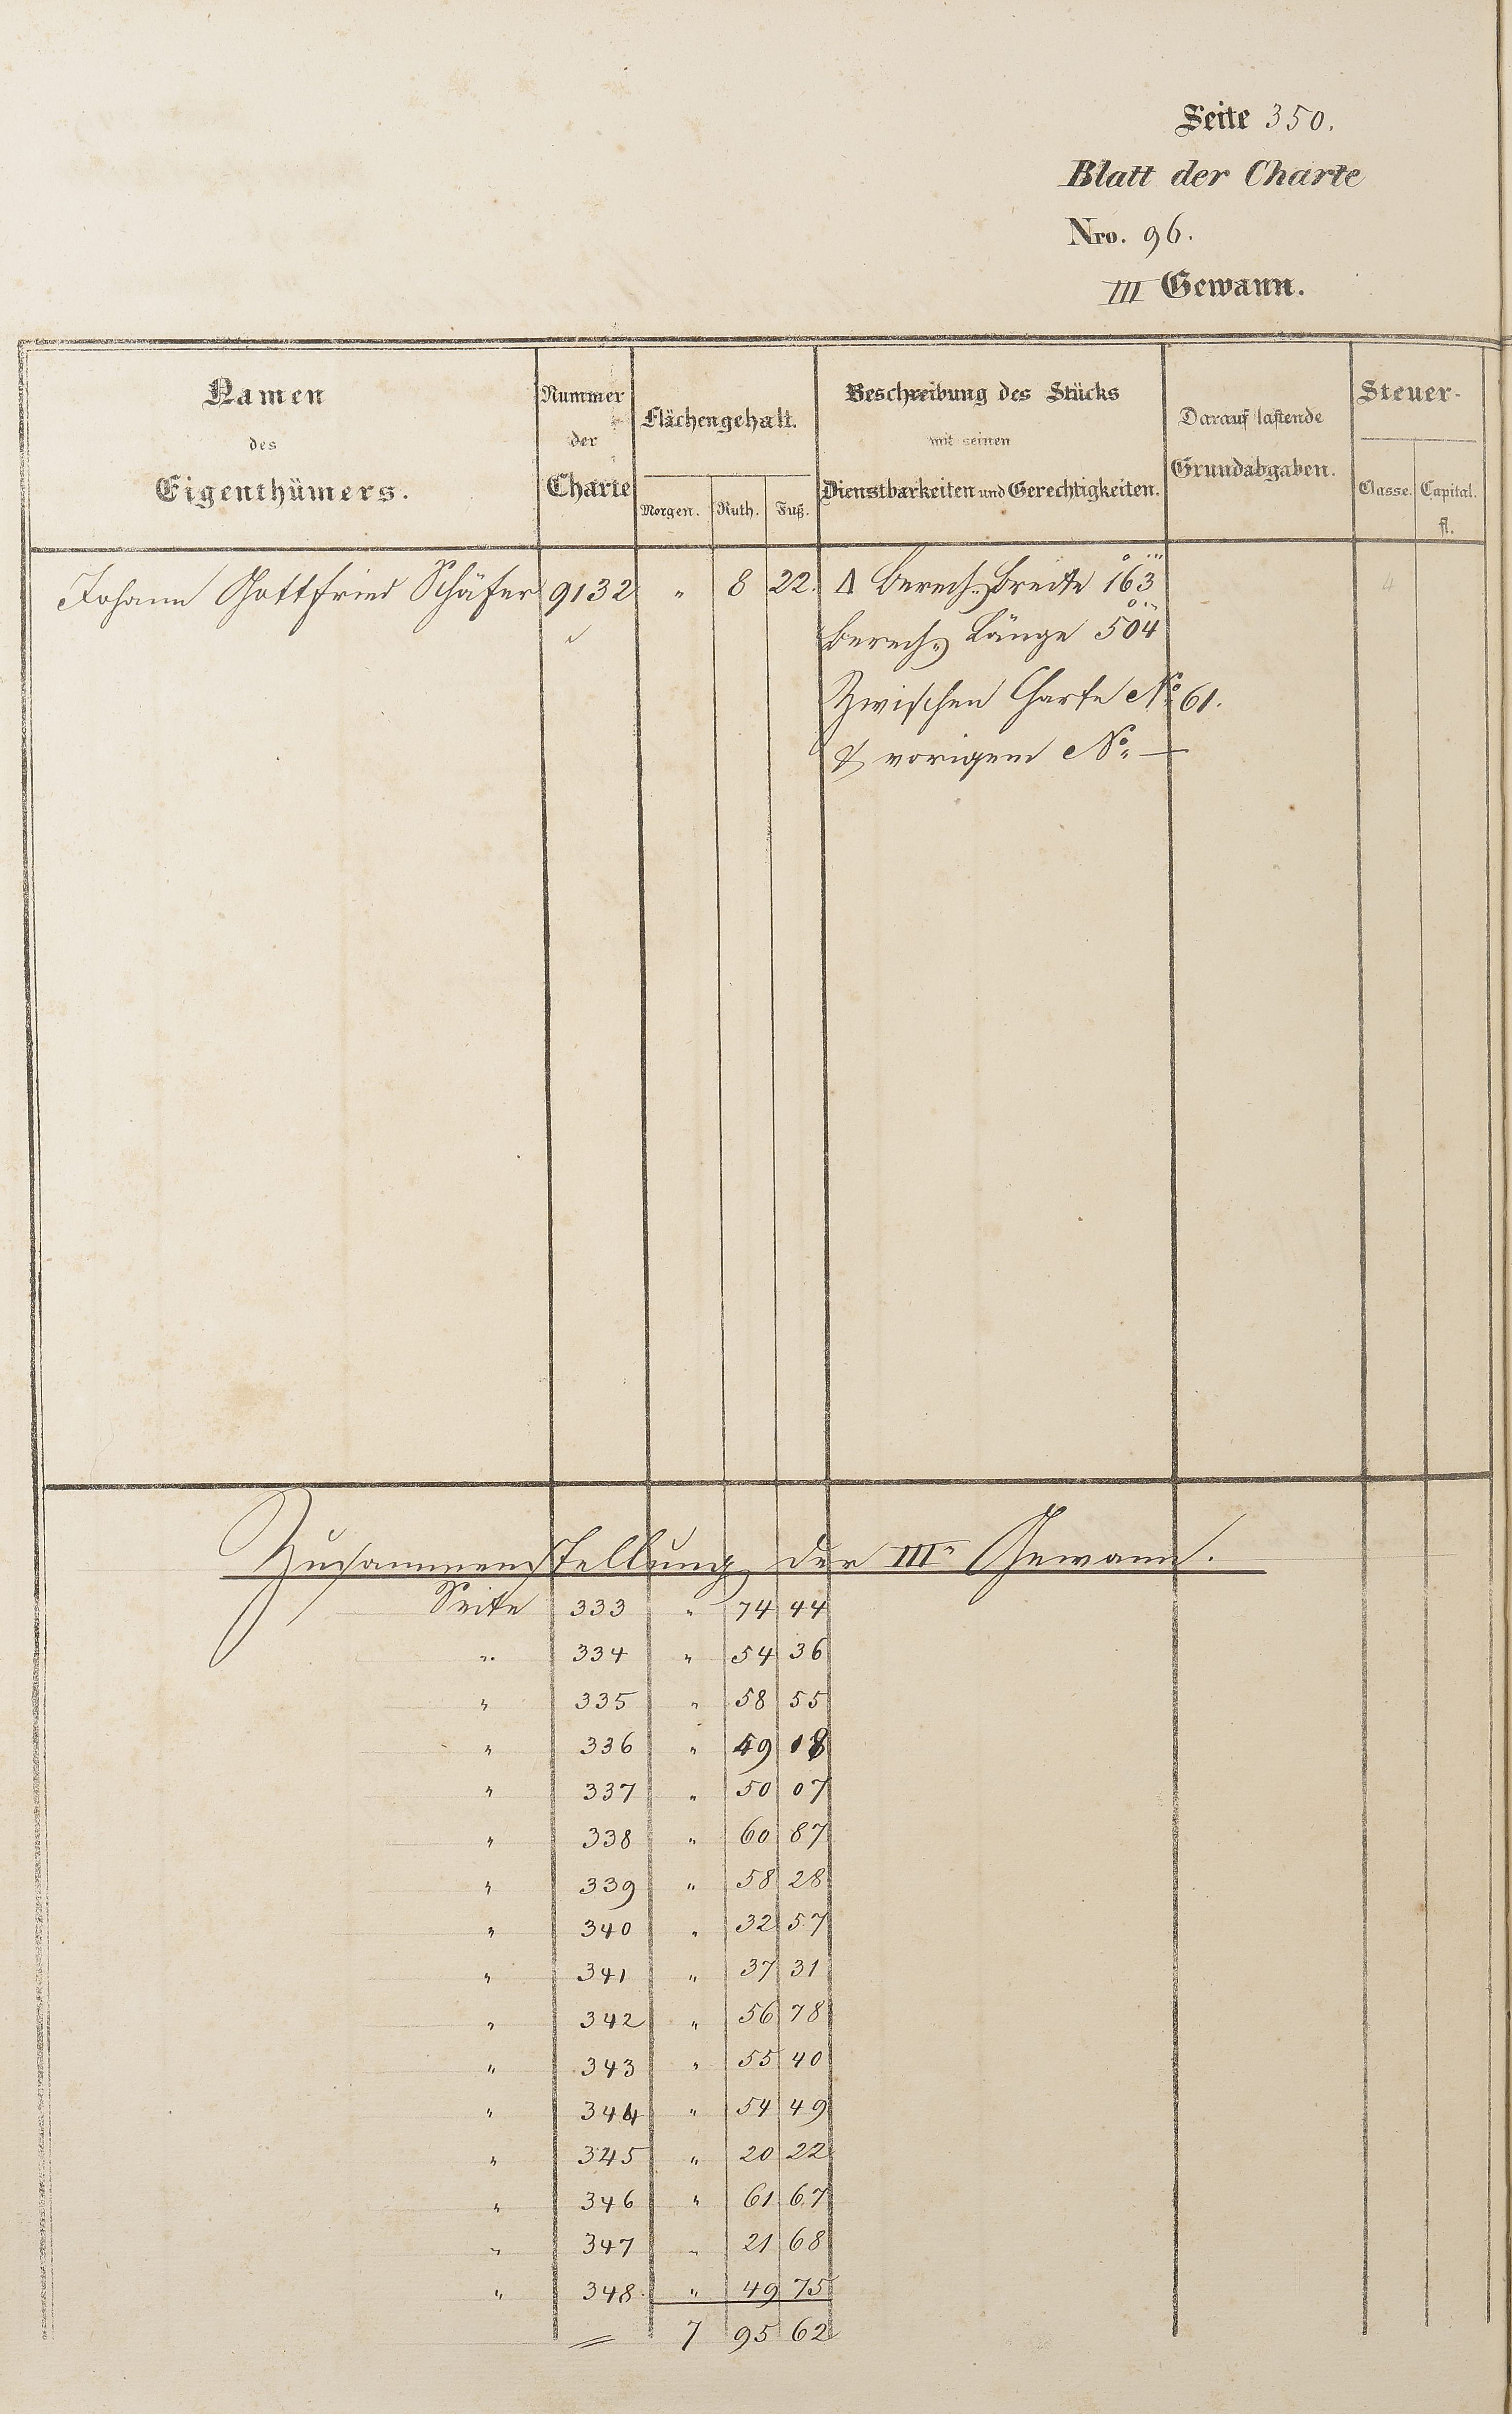 Seite 350.
Blatt der Charte
Nro. 96.
III Gewann.
Namen des Eigenthümers. | Nummer der Charte | Flächengehalt. Morgen. Ruth. Fuß. | Beschreibung des Stücks mit seinen Dienstbarkeiten und Gerechtigkeiten. | Darauf lastende Grundabgaben. | Steuer- Classe. Capital. fl.
Johann Gottfried Schäfer 9132 " 8 22. Δ berech. Breite 163 4
berech. Länge 504
Zwischen Charte No. 61.
& vorigem No. —
Zusammenstellung der IIIr Gewann.
Seite 333 " 74 44
" 334 " 54 36
" 335 " 58 55
" 336 " 49 18
" 337 " 50 07
" 338 " 60 87
" 339 " 58 28
" 340 " 32 57
" 341 " 37 31
" 342 " 56 78
" 343 " 55 40
" 344 " 54 49
" 345 " 20 22
" 346 " 61 67
" 347 " 21 68
" 348. " 49 75
= 7 95 62